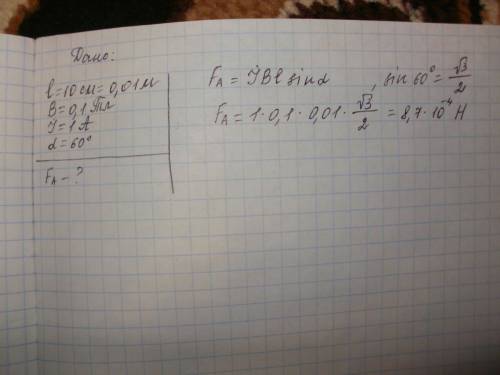 Дано:
l=10см=0,01м
B=0,1Тл
J=1А
α=60°
Fₐ-?
Fₐ = JBl sinα , sin 60°= √3/2
Fₐ = 1·0,1·0,01· √3/2 = 8,7·10⁻⁴ Н